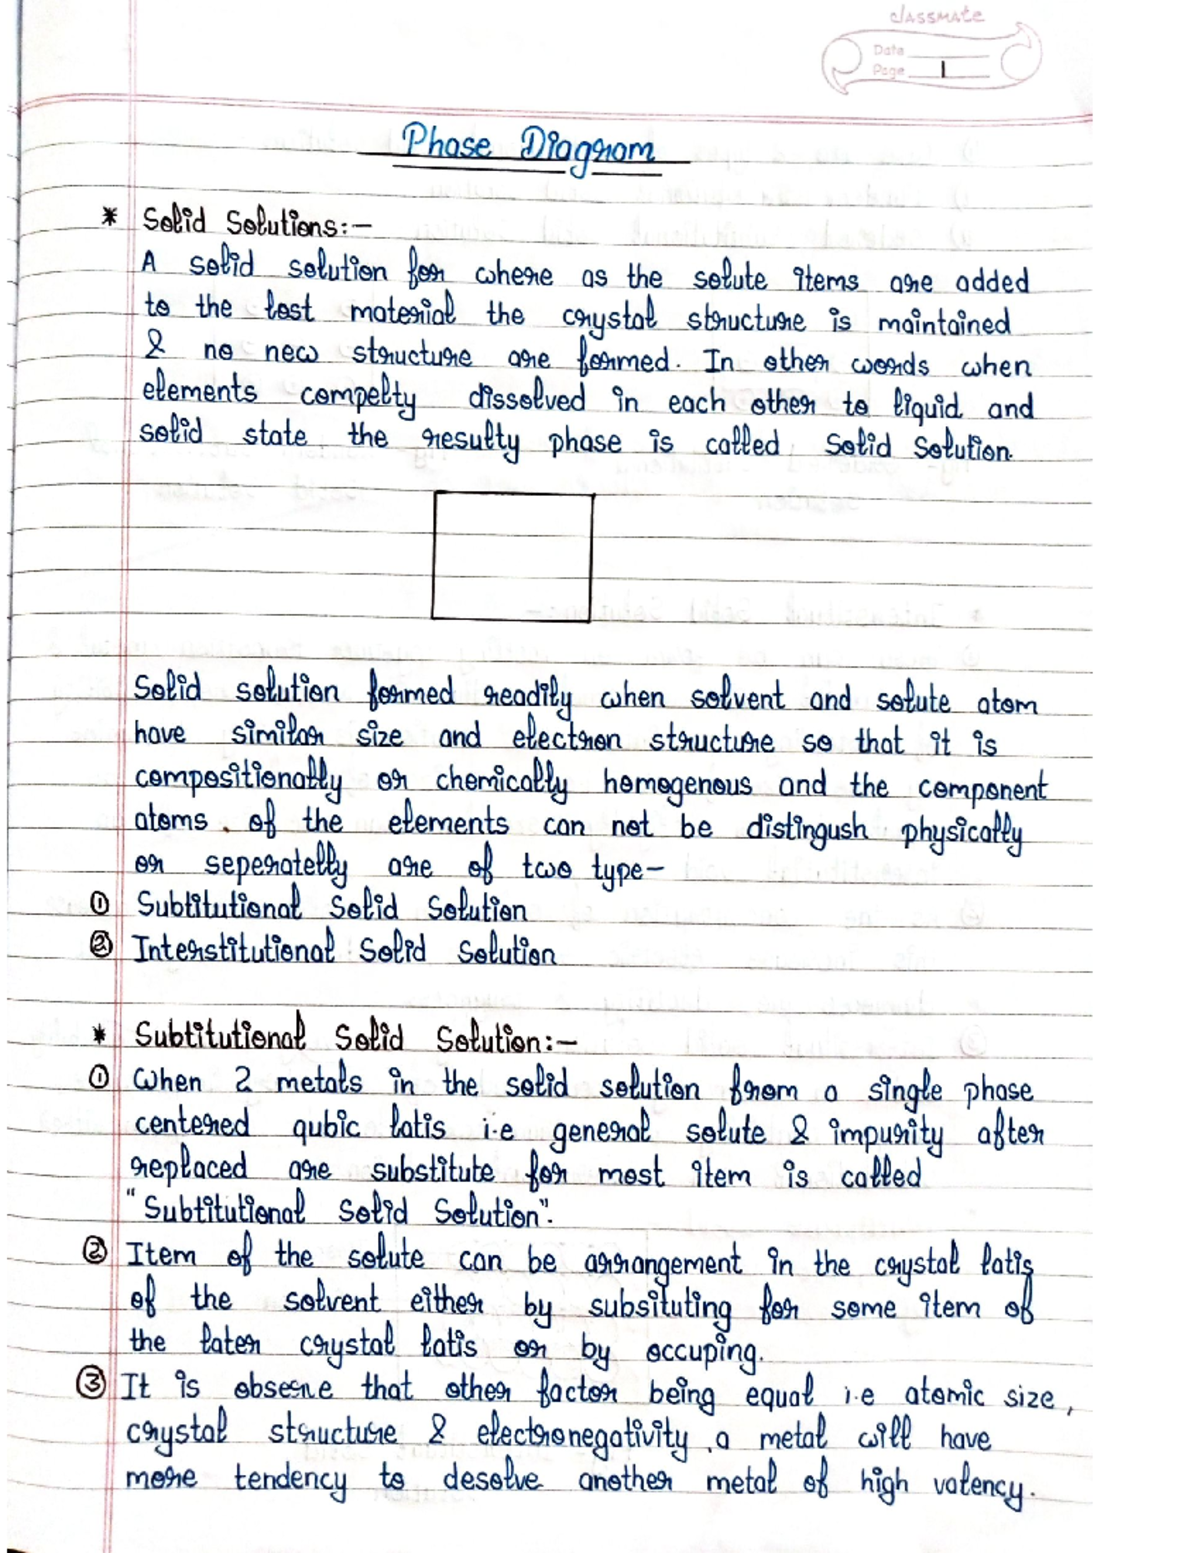 classmate
Date
Page 1
Phase Diagram
* Solid Solutions:-
A solid solution for where as the solute items are added
to the lost material the crystal structure is maintained
& no new structure are formed. In other words when
elements compelty dissolved in each other to liquid and
solid state the resulty phase is called Solid Solution.
Solid solution formed readily when solvent and solute atom
have similar size and electron structure so that it is
compositionally or chemically homogenous and the component
atoms. of the elements can not be distingush physically
or seperatelly are of two type-
① Subtitutional Solid Solution
② Interstitutional Solid Solution
* Subtitutional Solid Solution:-
① When 2 metals in the solid solution from a single phase
centered qubic latis i.e general solute & impurity after
replaced are substitute for most item is called
"Subtitutional Solid Solution".
② Item of the solute can be arrangement in the crystal latis
of the solvent either by subsituting for some item of
the later crystal latis or by occuping.
③ It is obserne that other factor being equal i.e atomic size,
crystal structure & electronegativity, a metal will have
more tendency to desolve another metal of high valency.